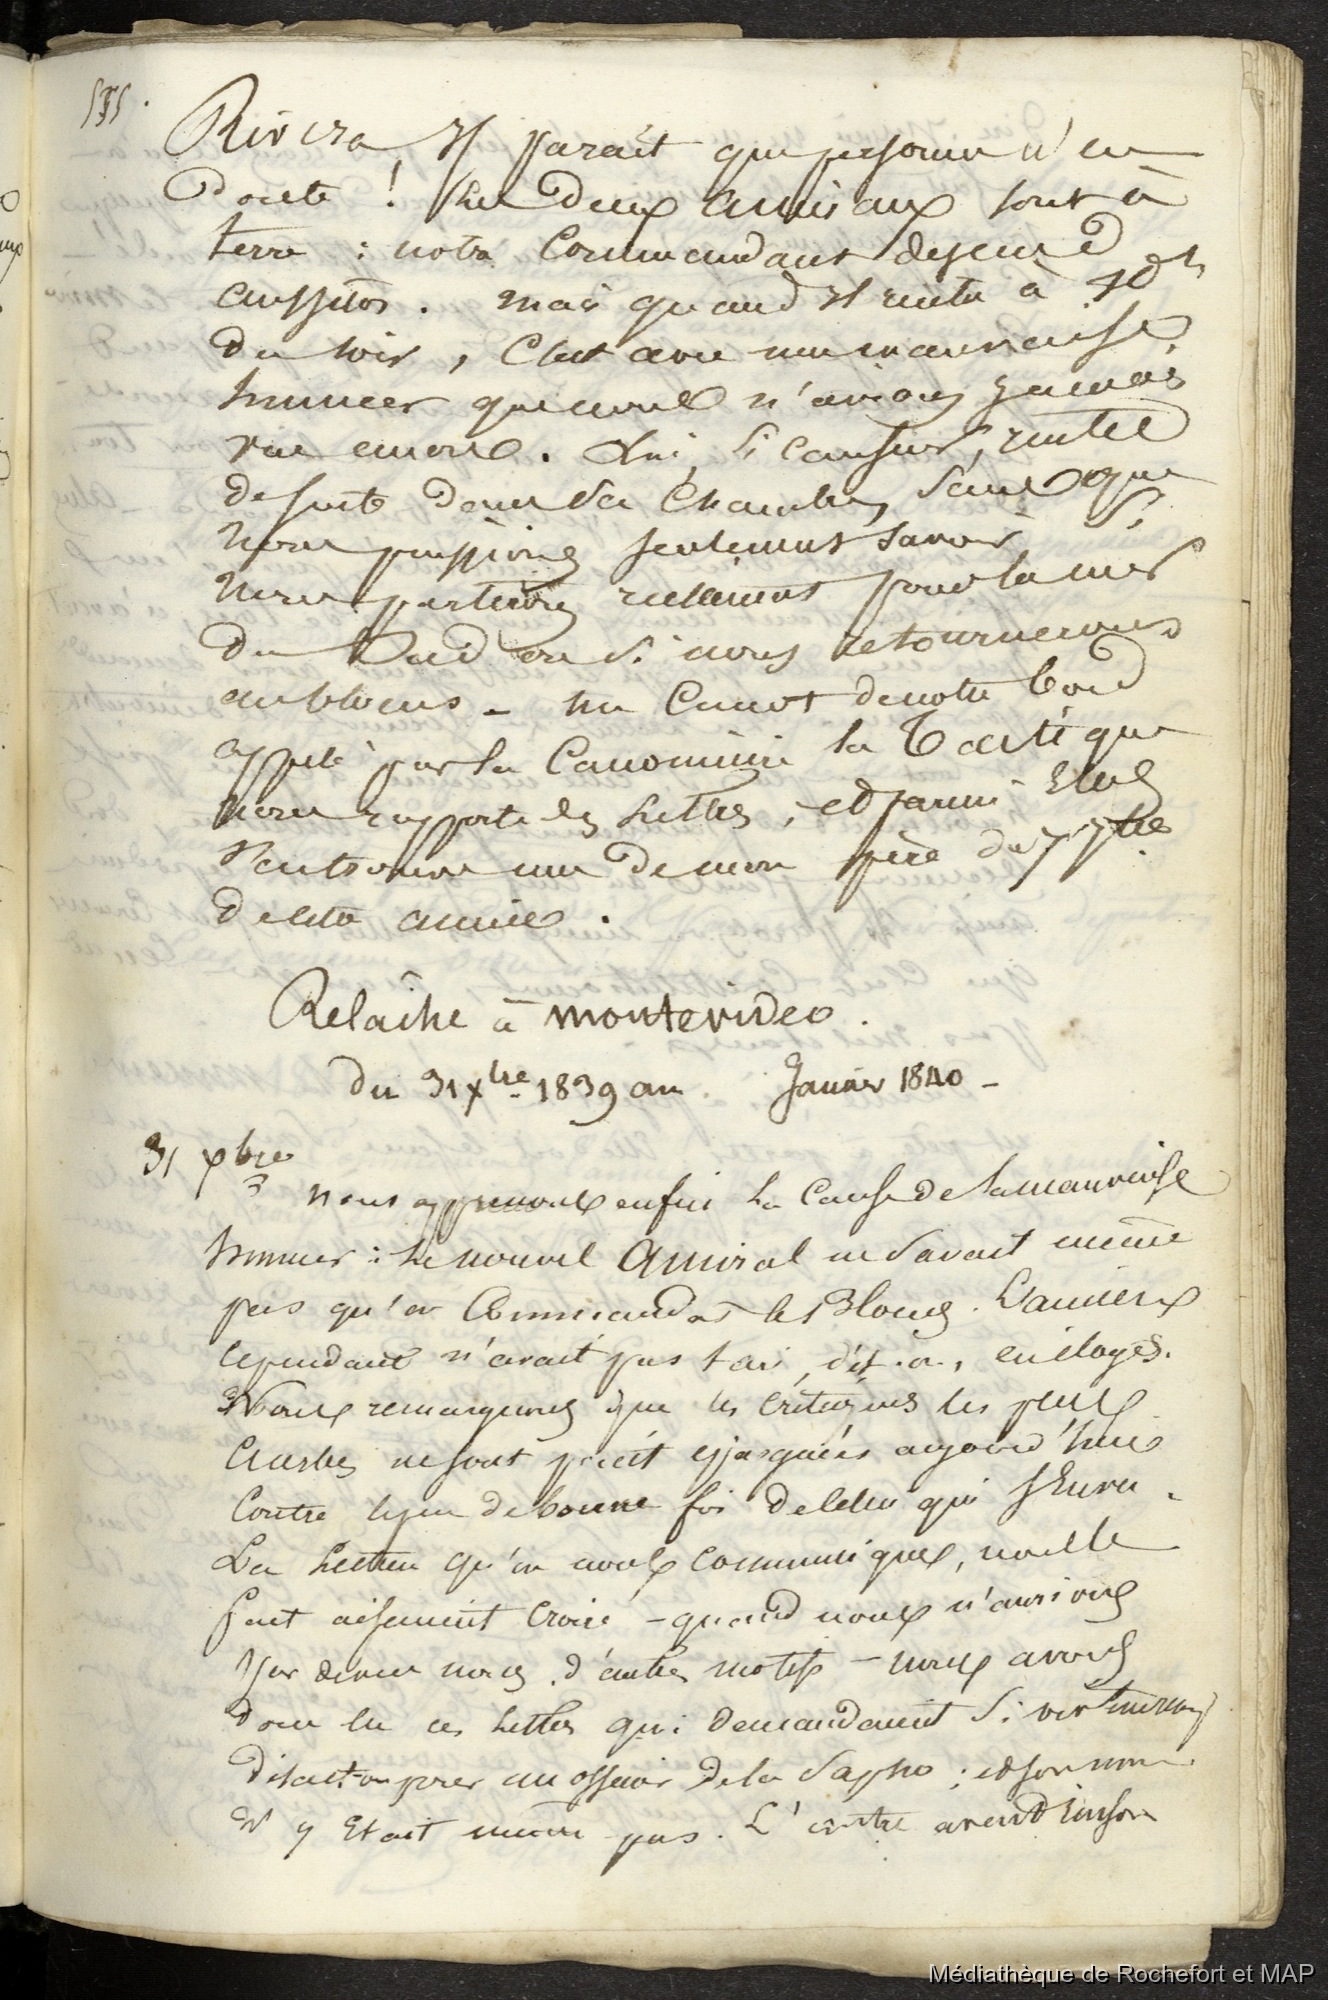 555.
Rivera Il parait que personne n'en
Doute ! Les Deux amiraux sont à
terre : notre Commandant descend
aussitôt . mais quand Il rentre à 10 h
Du soir , C'est avec une mauvaise
humeur que nous n'avions jamais
vue encore . Lui si causeur, rentre
de suite dans sa Chambre, sans que
nous puissions seulement savoir si
nous partirons réellement pour la mer
Du Sud ou si nous retournerons
au blocus - un Canot de notre bord
appelé par la Canonnière la Tactique
nous rapporte des Lettres ; et parmi Elles
s'en trouve une de mon père du 7 7bre
de cette année .
Relâche à Montevideo .
du 31 xbre 1839 au Janvier 1840 -
31 xbre
nous apprenons enfin la Cause de la mauvaise
humeur : Le nouvel Amiral ne savait même
pas qu'on Commandat les Blocus . L'ancien
cependant n'avait pas tari, dit-on, en éloges.
Nous remarquons que les critiques les plus
acerbes ne sont point épargnées aujourd'hui
Contre le peu de bonne foi de celui qui
La Lettre qu'on nous communique, nous le
fait aisément croire - quand nous n'aurions
par devers nous d'autres motifs - nous avons
donc lu ces Lettres qui demandaient si
disait-on pour un officier de la Sapho ; et son nom
N'y Etait même pas . L'autre avait
Médiathèque de Rochefort et MAP